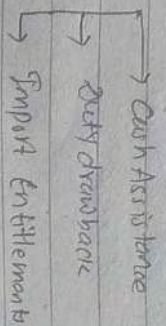 Cash Assistance
Duty drawback
Import Entitlements